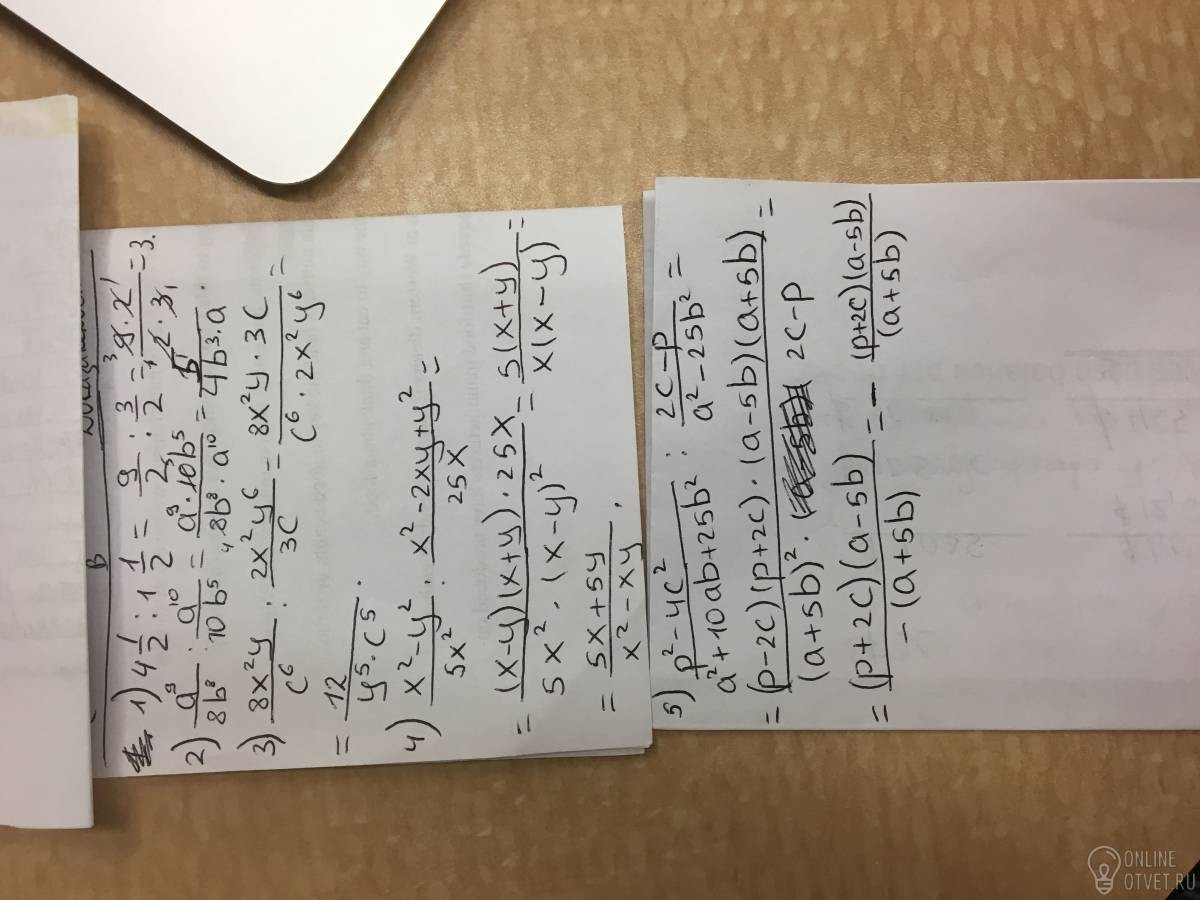 В
1) 4 1/2 : 1 1/2 = 9/2 : 3/2 = 9·2/2·3 = 3.
2) a⁹/8b⁸ : a¹⁰/10b⁵ = a⁹·10b⁵/8b⁸·a¹⁰ = 5/4b³·a.
3) 8x²y/c⁶ : 2x²y⁶/3c = 8x²y·3c/c⁶·2x²y⁶ =
= 12/y⁵·c⁵.
4) x²-y²/5x² : x²-2xy+y²/25x =
= (x-y)(x+y)·25x/5x²·(x-y)² = 5(x+y)/x(x-y) =
= 5x+5y/x²-xy.
5) p²-4c²/a²+10ab+25b² : 2c-p/a²-25b² =
= (p-2c)(p+2c)·(a-5b)(a+5b)/(a+5b)²· 2c-p =
= (p+2c)(a-5b)/-(a+5b) = - (p+2c)(a-5b)/(a+5b)
ONLINE
OTVET.RU